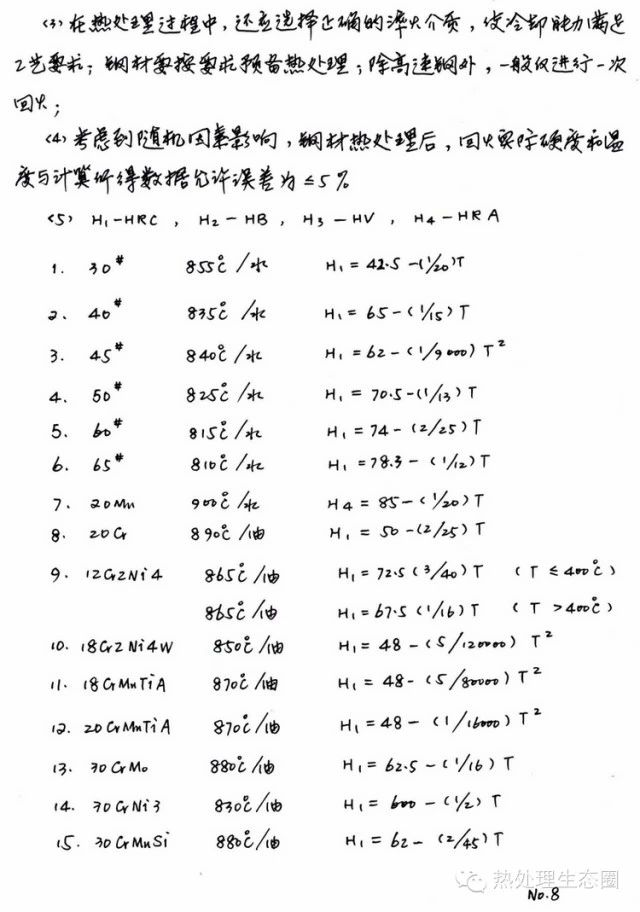 (3) 在热处理过程中，还应选择正确的淬火介质，使冷却能力满足
工艺要求；钢材要按要求预备热处理；除高速钢外，一般仅进行一次
回火；
(4) 考虑到随机因素影响，钢材热处理后，回火实际硬度和温
度与计算所得数据允许误差为≤5%
(5) H₁-HRC , H₂-HB , H₃-HV , H₄-HRA
1. 30# 855℃/水 H₁=42.5-(1/20)T
2. 40# 835℃/水 H₁=65-(1/15)T
3. 45# 840℃/水 H₁=62-(1/9000)T²
4. 50# 825℃/水 H₁=70.5-(1/13)T
5. 60# 815℃/水 H₁=74-(2/25)T
6. 65# 810℃/水 H₁=78.3-(1/12)T
7. 20Mn 900℃/水 H4=85-(1/20)T
8. 20Cr 890℃/油 H₁=50-(2/25)T
9. 12Cr2Ni4 865℃/油 H₁=72.5(3/40)T (T≤400℃)
865℃/油 H₁=67.5(1/16)T (T>400℃)
10. 18Cr2Ni4W 850℃/油 H₁=48-(5/120000)T²
11. 18CrMnTiA 870℃/油 H₁=48-(5/80000)T²
12. 20CrMnTiA 870℃/油 H₁=48-(1/16000)T²
13. 30CrMo 880℃/油 H₁=62.5-(1/16)T
14. 30CrNi3 830℃/油 H₁=600-(1/2)T
15. 30CrMnSi 880℃/油 H₁=62-(2/45)T
热处理生态圈
No.8